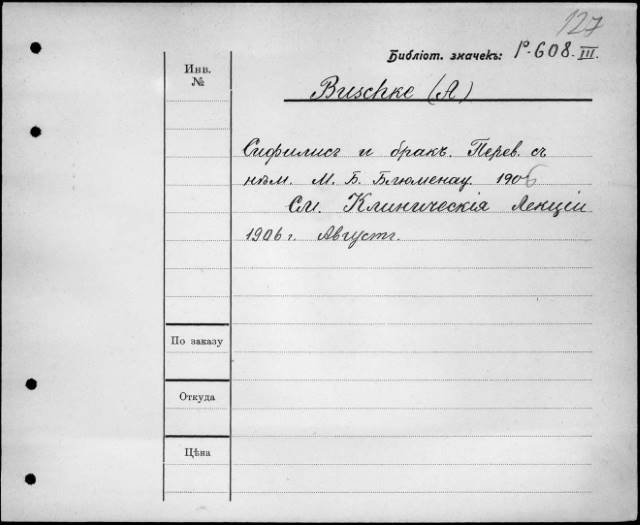 127
Библіот. значекъ: P-608.III.
Инв.
№
Buschke (A)
Сифилисъ и бракъ. Перев. съ
нѣм. М. Б. Блюменау. 1906
См. Клиническія Лекціи
1906 г. Августъ.
По заказу
Откуда
Цѣна